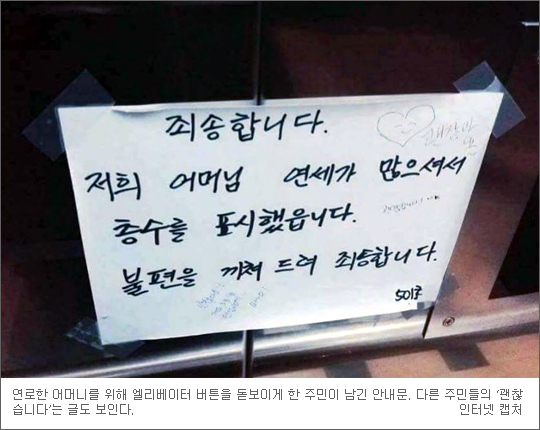 죄송합니다.
저희 어머님 연세가 많으셔서
층수를 표시했읍니다.
불편을 끼쳐 드려 죄송합니다.
501호
연로한 어머니를 위해 엘리베이터 버튼을 돋보이게 한 주민이 남긴 안내문. 다른 주민들의 ‘괜찮
습니다’는 글도 보인다.
인터넷 캡처